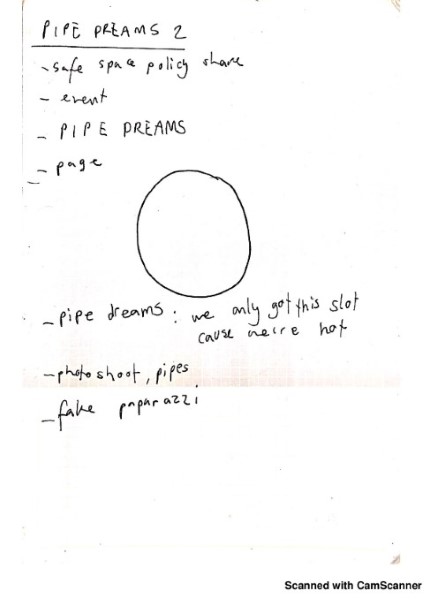 PIPE DREAMS 2
- safe space policy share
- event
- PIPE DREAMS
- page
- pipe dreams : we only got this slot
cause we're hot
- photoshoot, pipes
- fake paparazzi
Scanned with CamScanner